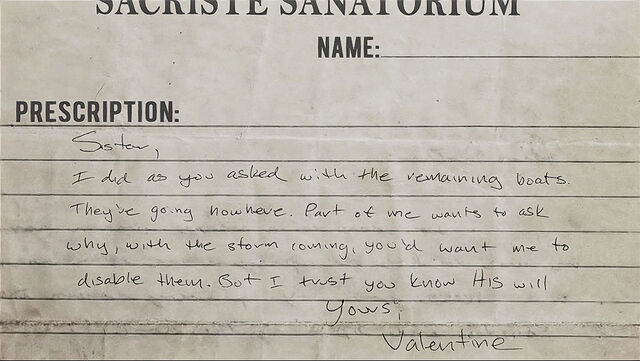 SACRISTE SANATORIUM
NAME:
PRESCRIPTION:
Sister,
I did as you asked with the remaining boats.
They've going nowhere. Part of me wants to ask
why, with the storm coming, you'd want me to
disable them. But I trust you know His will
Yours,
Valentine